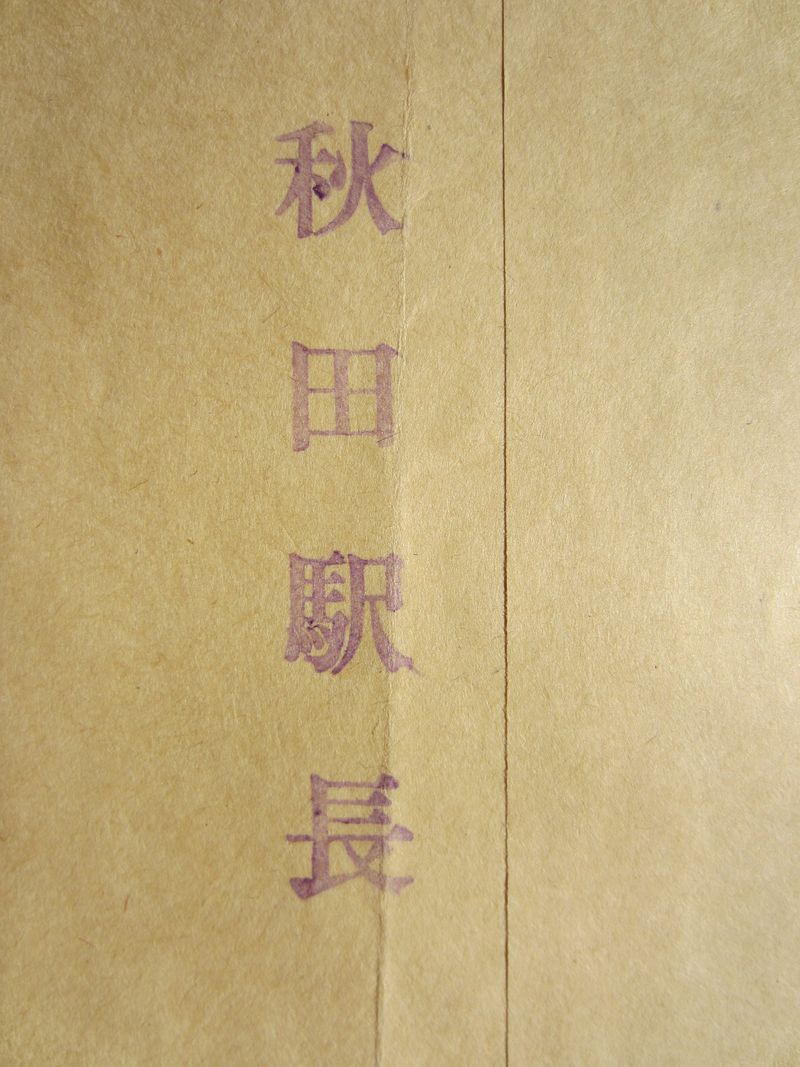 秋田駅長